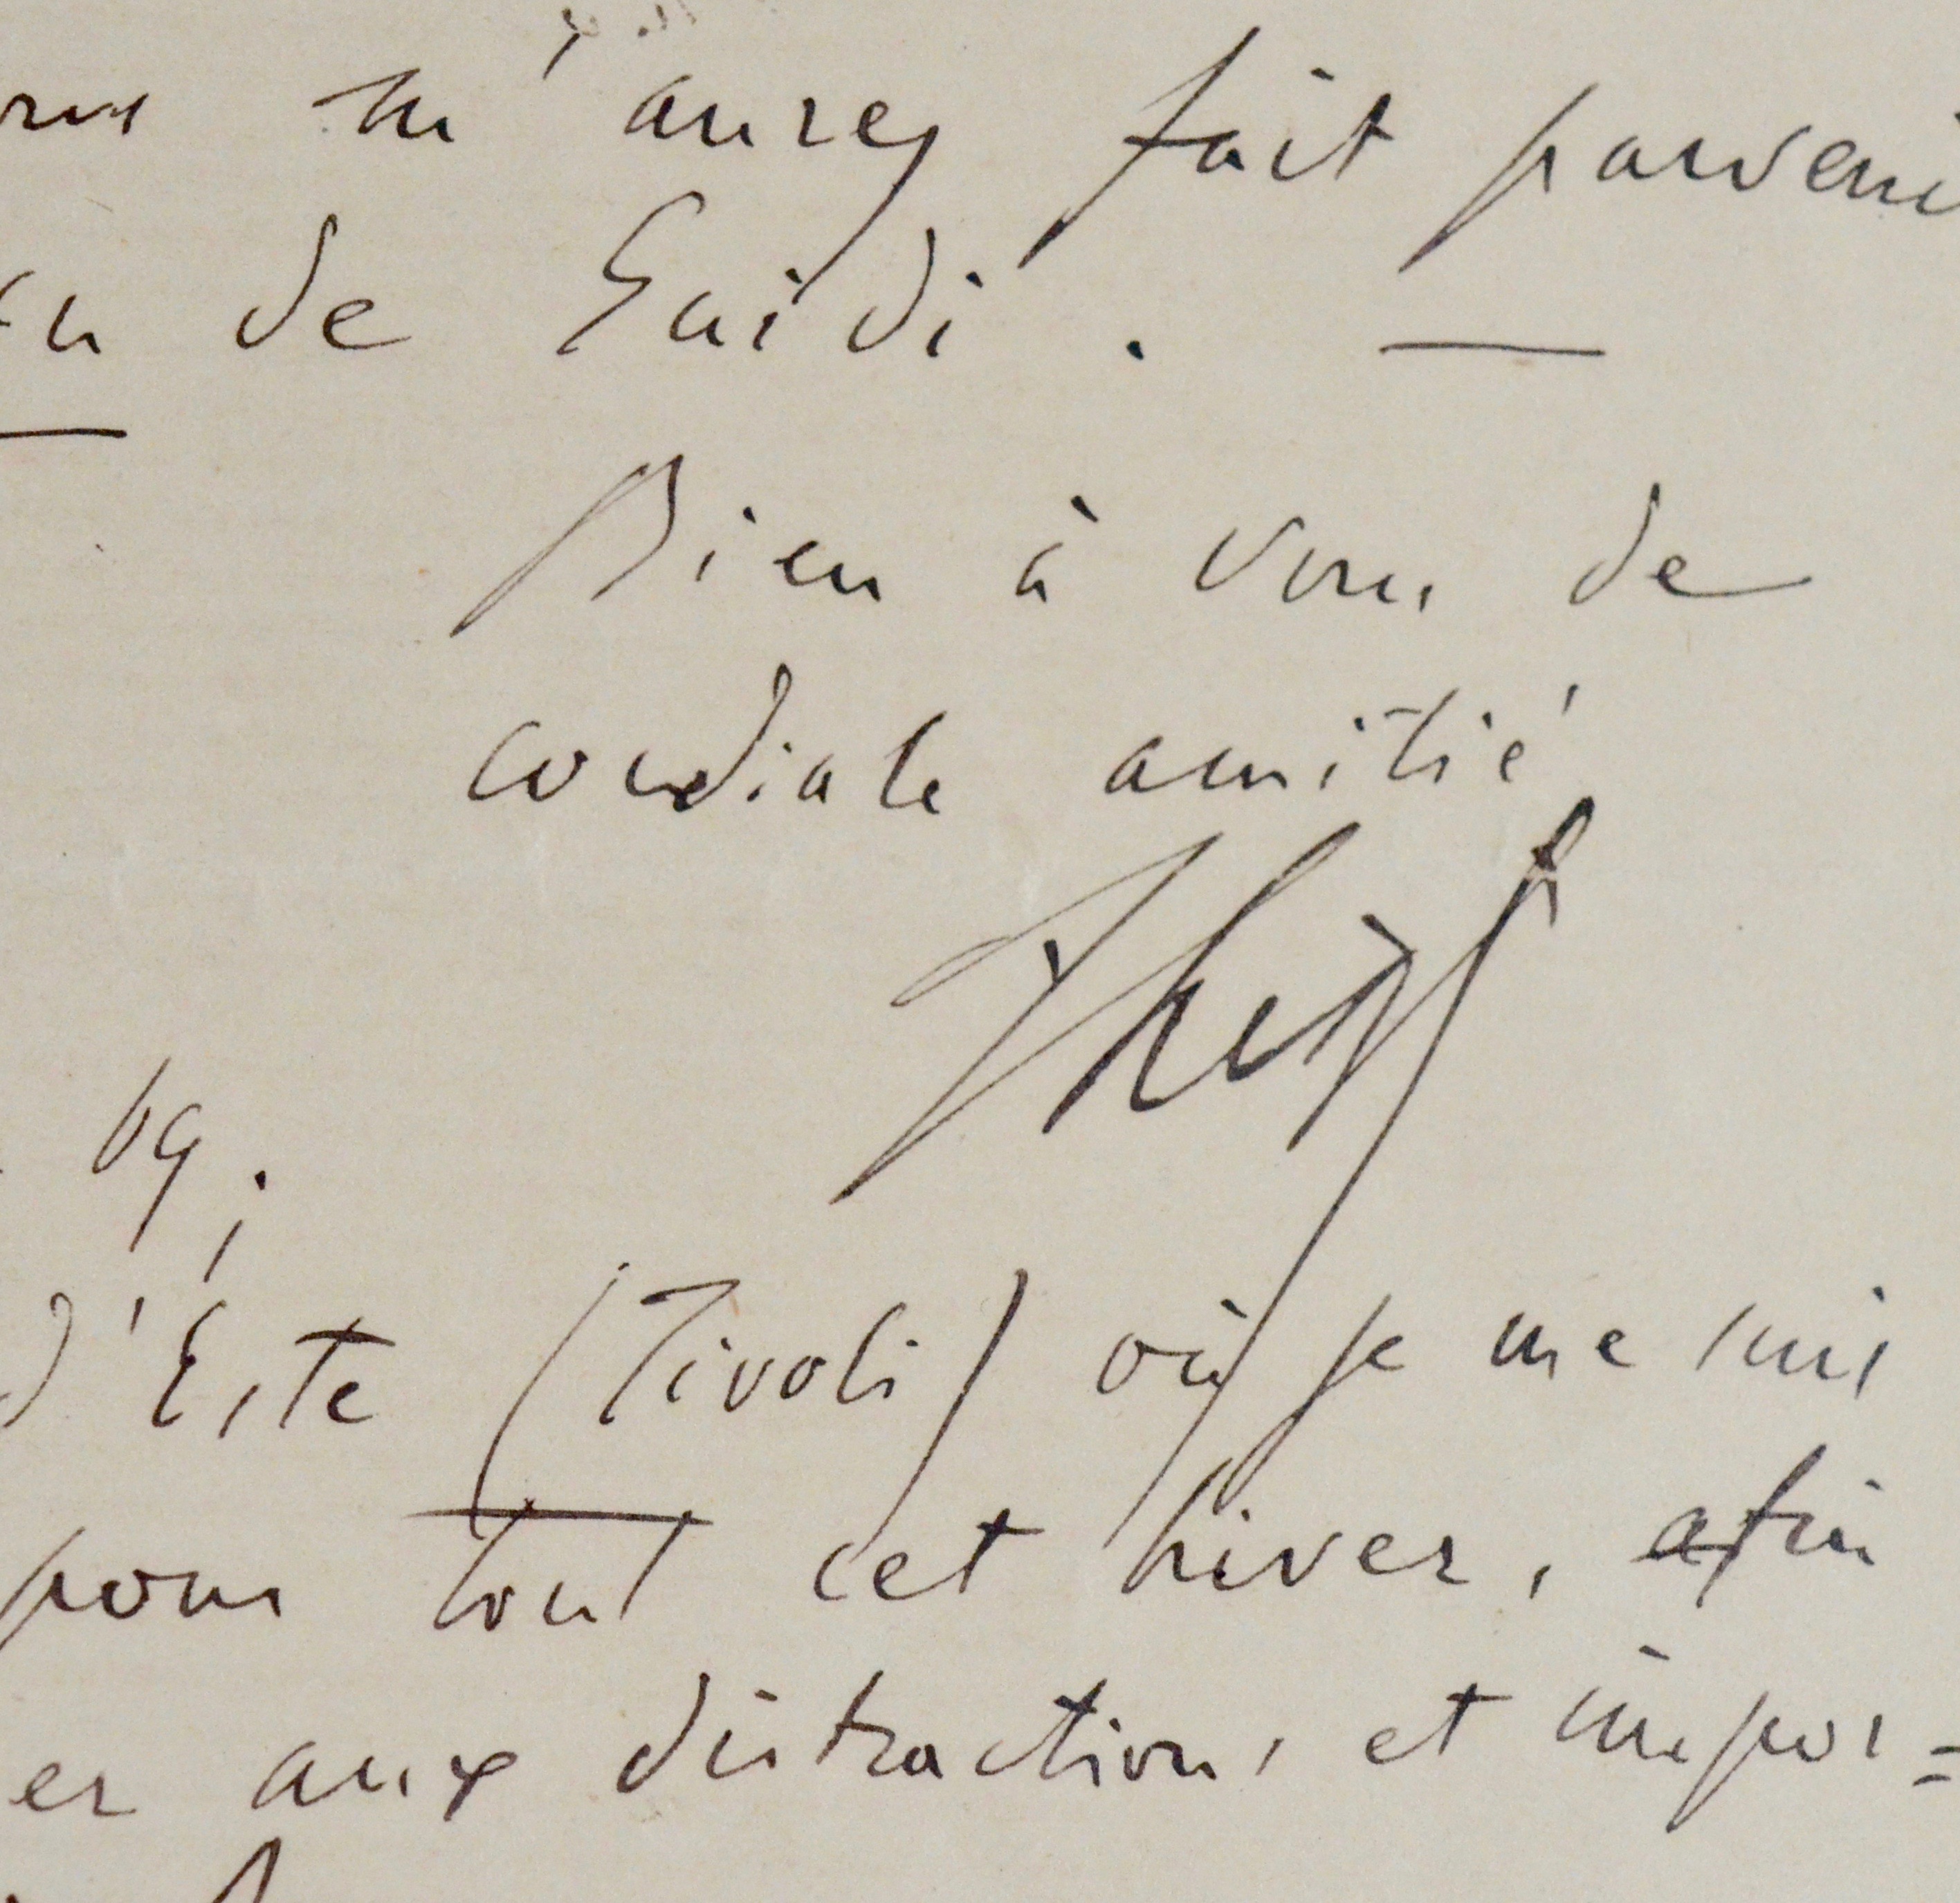 m'aurez fait parveni
de Guidi. —
Bien à vous de
cordiale amitié
FLiszt
69.
d'Este (Tivoli) où je me suis
pour tout cet hiver, afin
er aux distractions et impor=